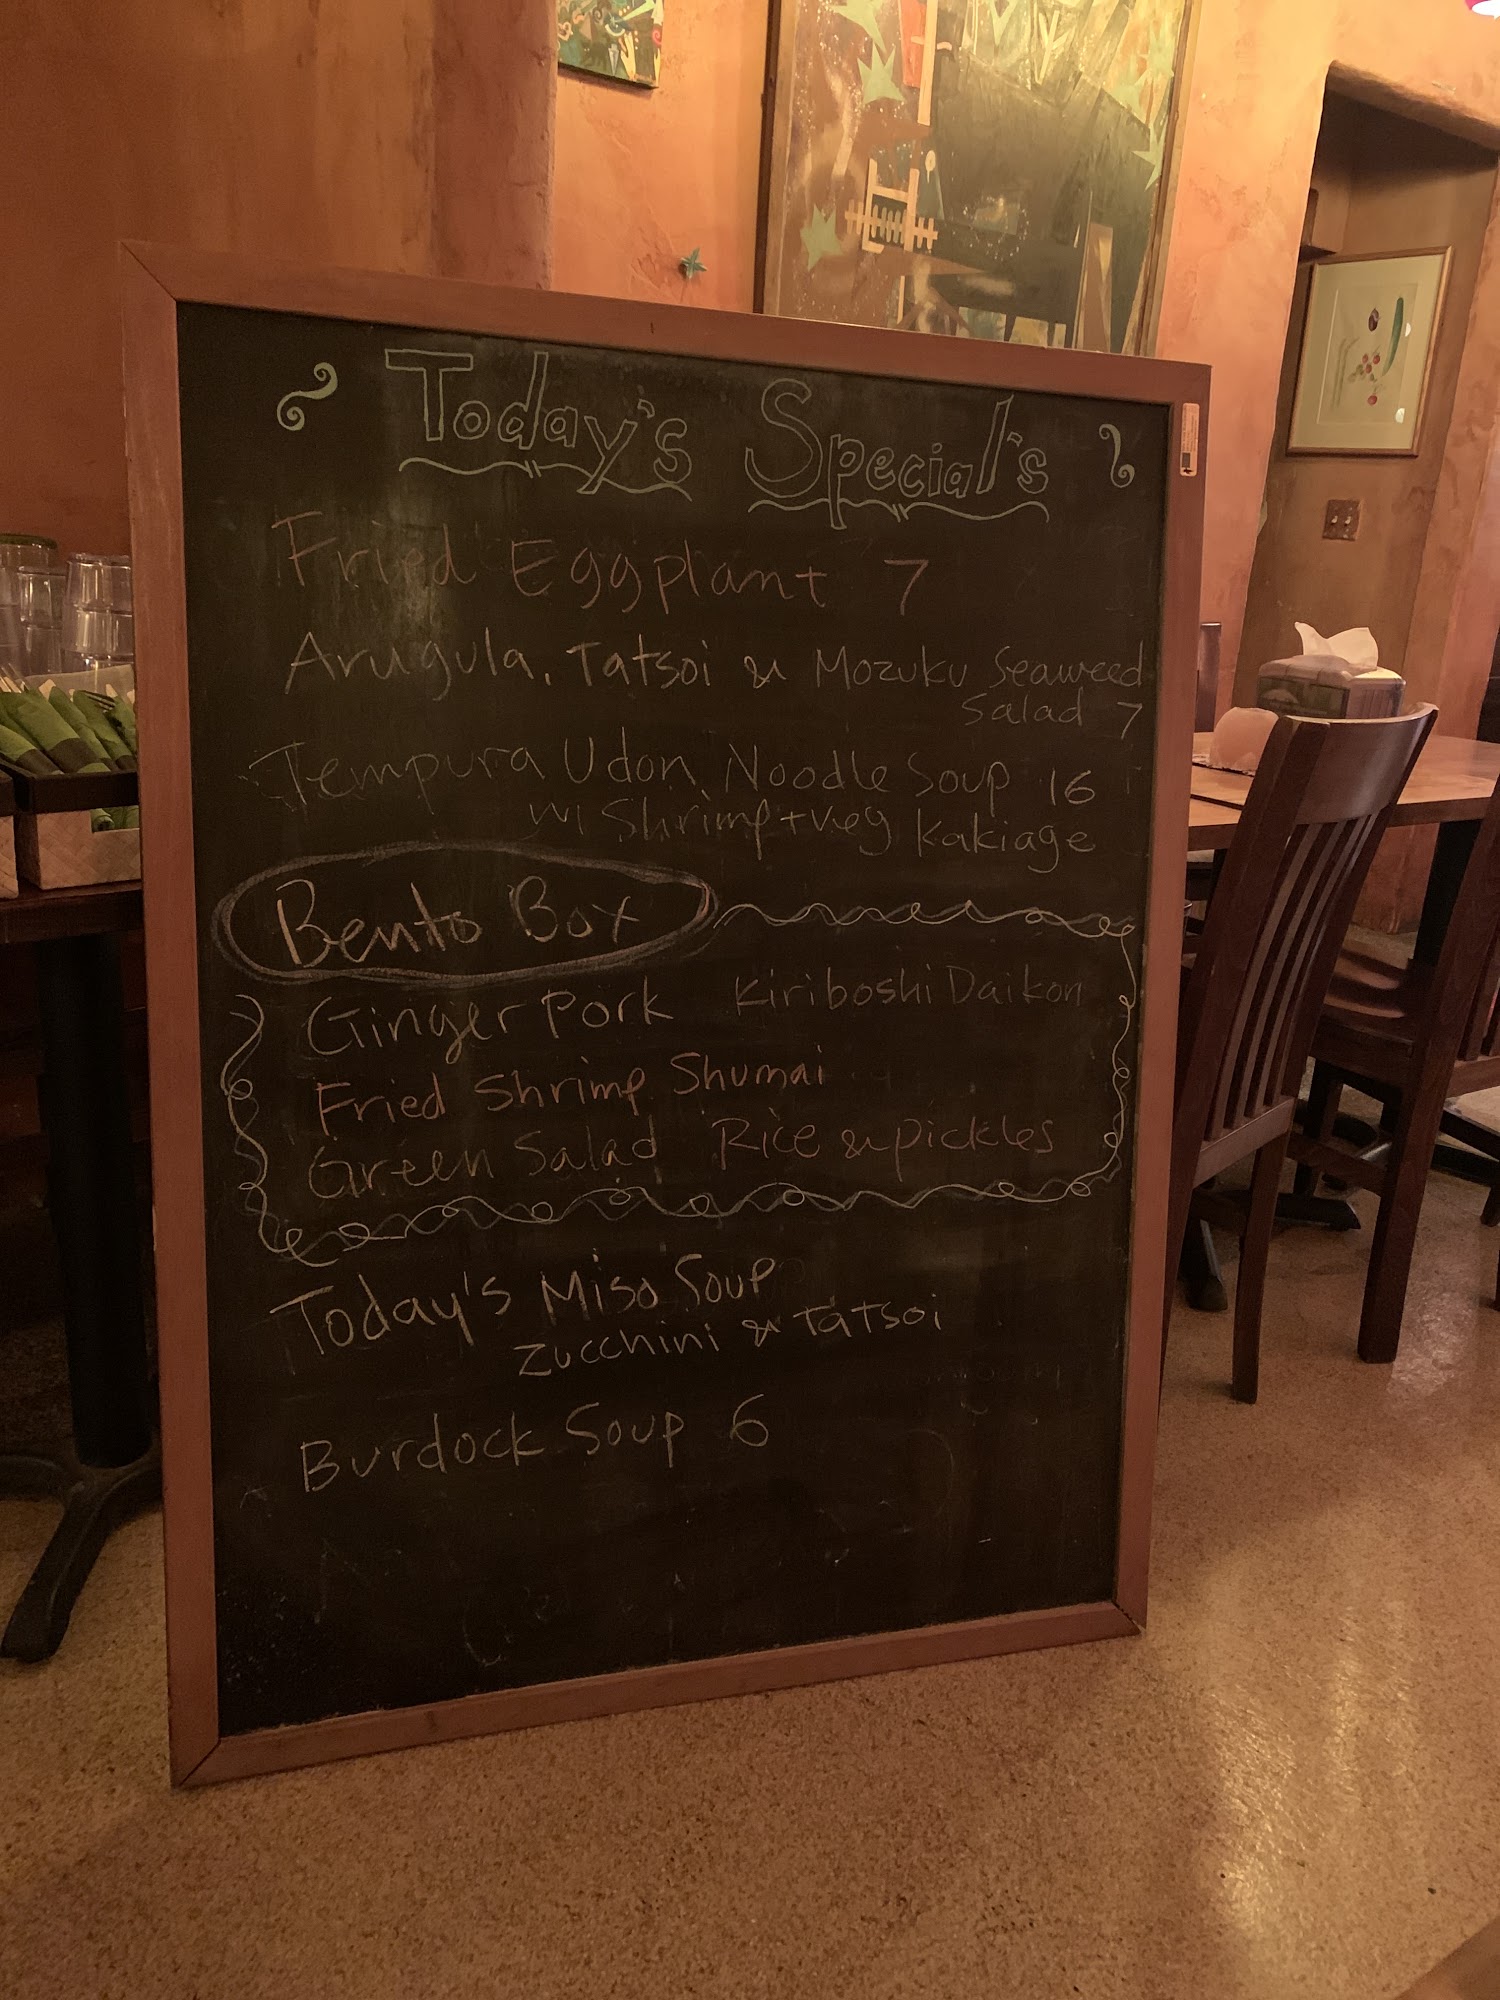 Today's Special's
Fried Eggplant 7
Arugula, Tatsoi & Mozuku Seaweed
Salad 7
Tempura Udon Noodle Soup 16
w/ Shrimp + Veg Kakiage
Bento Box
Ginger Pork Kiriboshi Daikon
Fried Shrimp Shumai
Green Salad Rice & Pickles
Today's Miso Soup
Zucchini & Tatsoi
Burdock Soup 6